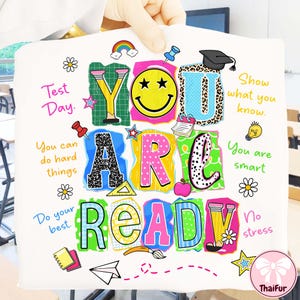 Test
Day.
YOU
Show
what you
know.
You can
do hard
things
ARE
You are
smart
Do your
best
READY
No
stress
ThaiFur